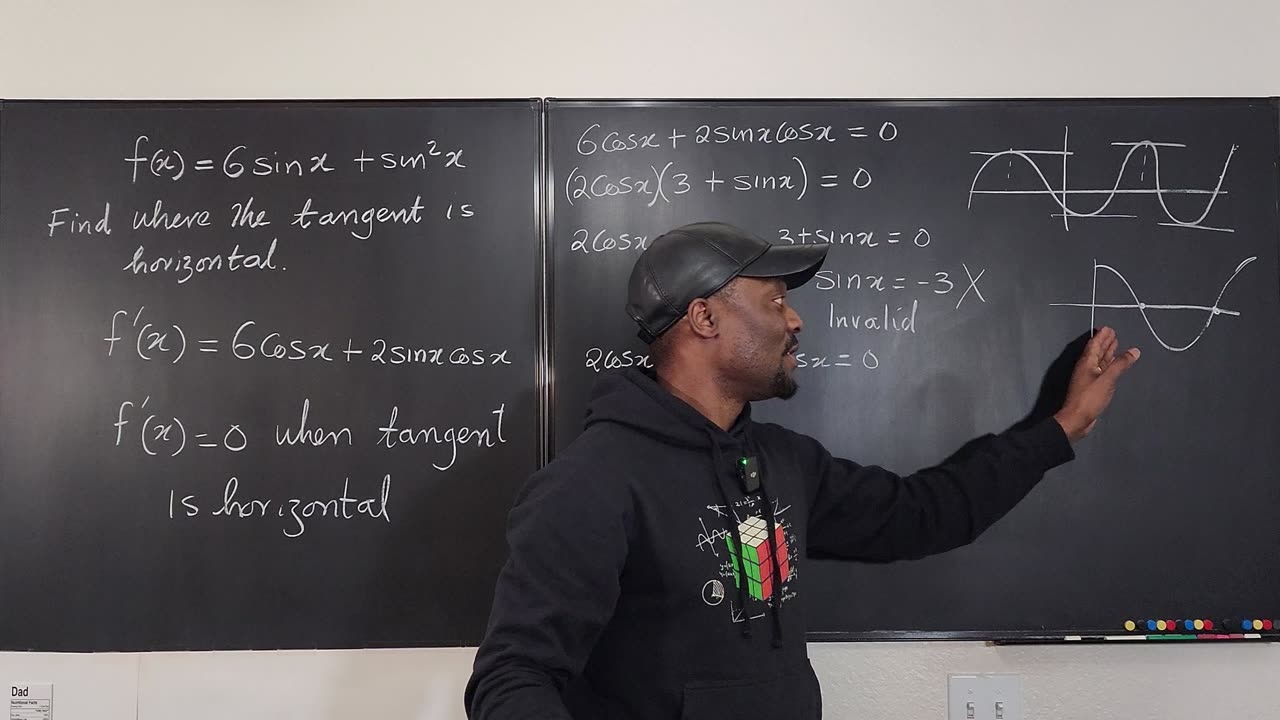 f(x) = 6 sinx + sin²x
Find where the tangent is
horizontal.
f'(x) = 6cosx + 2sinxcosx
f'(x) = 0 when tangent
is horizontal
6cosx + 2sinxcosx = 0
(2cosx)(3 + sinx) = 0
2cosx 3+sinx = 0
sinx = -3 X
Invalid
2cosx sx = 0
Dad
Nutritional Facts